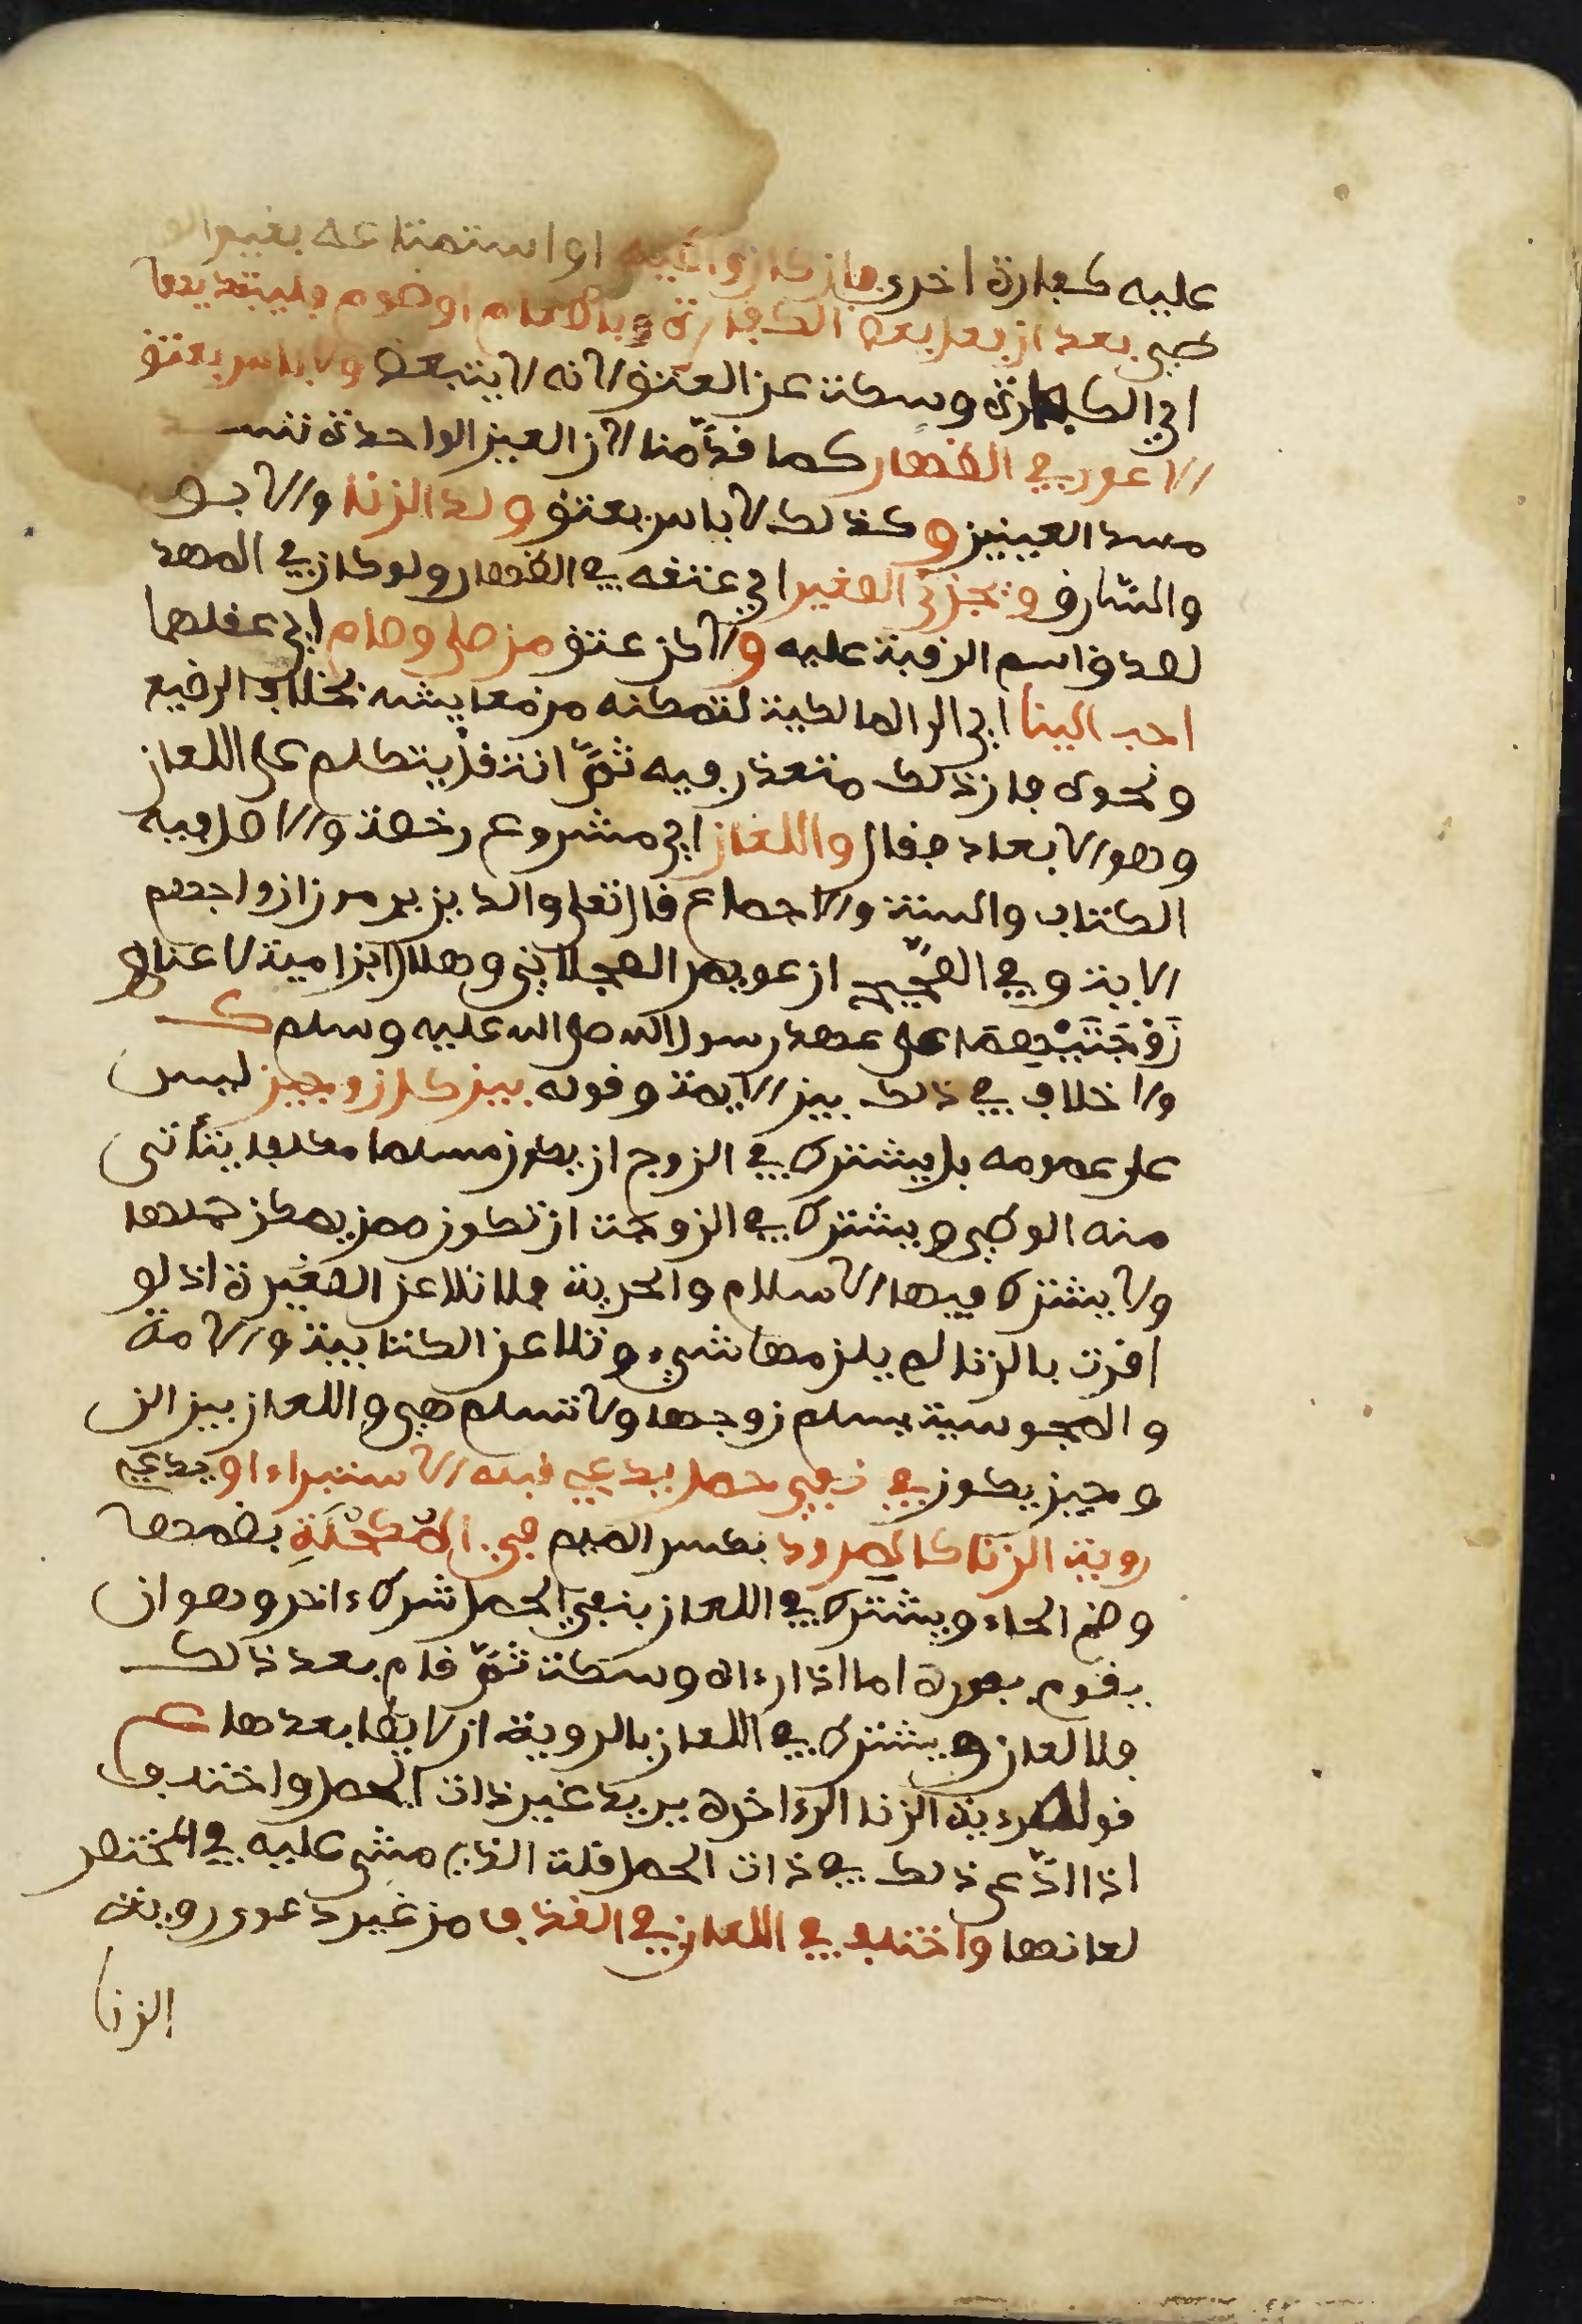 عليه كفارة اخرى فان كان وطئه او استمتاعه بغير الو
طىء بعد ان فعل بعض الكفارة بالاطعام او صوم فليبتديها
اي الكفارة وسكت عن العتق لانه لا يتبعض ولا باس بعتق
الاعور في الظهار كما قدّمنا لان العين الواحدة تسد
مسد العينين وكذلك لا باس بعتق ولد الزنا والابو
والسّارق ويجزئ الصغير اي عتقه في الظهار ولو كان في المهد
لصدق اسم الرقبة عليه ولاكن عتق من صلى وصام اي عقلهما
احب الينا اي الى المالكية لتمكنه من معايشه بخلاف الرضيع
ونحوه فان ذلك متعذر فيه ثمّ انتقل يتكلم على اللعان
وهو الابعاد فقال واللعان اي مشروع رخصة والاصل فيه
الكتاب والسنة والاجماع قال تعلى والذين يرمون ازواجهم
الاية وفي الصّحيح ان عويمر العجلاني وهلال ابن امية لاعنا و
زَوْجَتَيْهِمَا على عهد رسول الله صلى الله عليه وسلم
ولا خلاف في ذلك بين الايمة وقوله بين كل زوجين ليس
على عمومه بل يشترط في الزوج ان يكون مسلما مكلفا يتأتى
منه الوطىء ويشترط في الزوجة ان تكون ممن يمكن حملها
ولا يشترط فيها الاسلام والحرية فلا تلاعن الصغيرة اذ لو
اقرت بالزنا لم يلزمها شيء وتلاعن الكتابية والامة
والمجوسية يسلم زوجها ولا تسلم هي واللعان بين الز
وجين يكون في نفي حمل يدعي قبله الاستبراء او يدعي
روية الزنا كالمرود بكسر الميم في الْمُكْحُلَةِ بضمها
وضم الحاء ويشترط في اللعان بنفي الحمل شرط ءاخر وهو ان
يقوم بفوره اما اذا رءاه وسكت ثمّ قام بعد ذلك
فلا لعان ويشترط في اللعان بالروية ان لا يطا بعدها ع
قوله رءية الزنا الى ءاخره يريد غير ذات الحمل واختلف
اذا ادّعى ذلك في ذات الحمل قلت الذي مشى عليه في المختصر
لعانها واختلف في اللعان في القذف من غير دعوى روية
الزنا